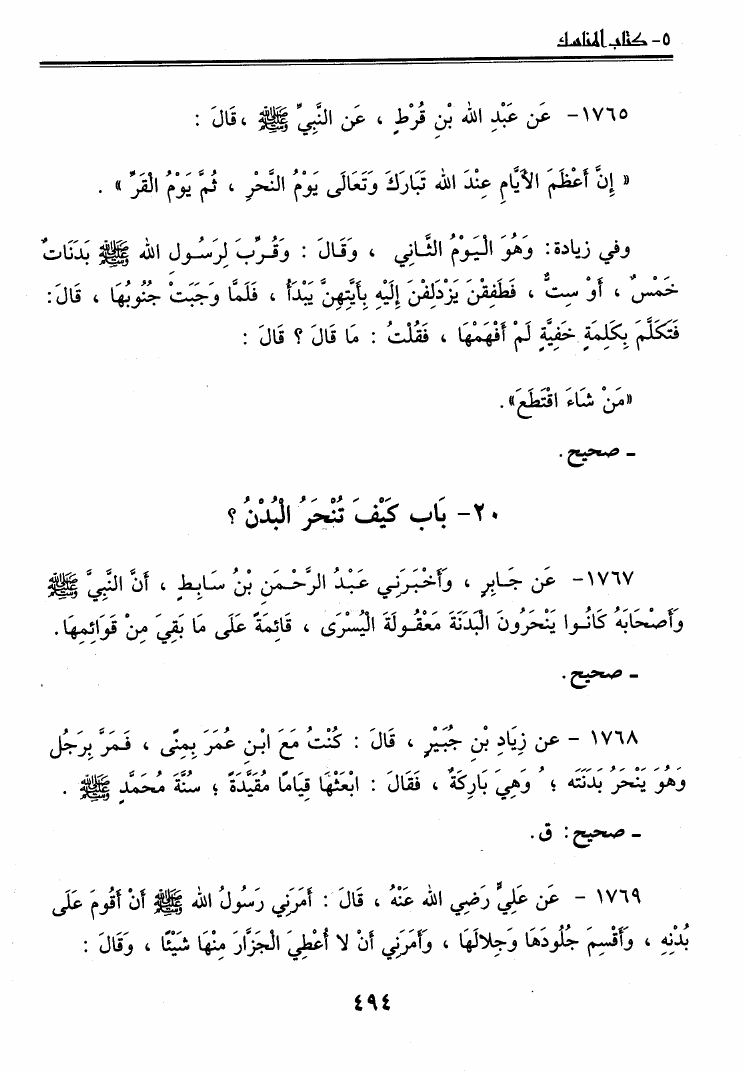 ٥- كتاب المناسك
١٧٦٥- عَن عَبْدِ الله بْنِ قُرْطٍ ، عَن النَّبِيِّ ﷺ ،قَالَ :
« إِنَّ أَعْظَمَ الأَيَّامِ عِنْدَ الله تَبَارَكَ وَتَعَالَى يَوْمُ النَّحْرِ ، ثُمَّ يَوْمُ الْقَرِّ » .
وفي زيادة: وَهُوَ الْيَوْمُ الثَّانِي ، وَقَالَ : وَقُرِّبَ لِرَسُولِ الله ﷺ بَدَنَاتٌ
خَمْسٌ ، أَوْ سِتٌّ ، فَطَفِقْنَ يَزْدَلِفْنَ إِلَيْهِ بِأَيَّتِهِنَّ يَبْدَأُ ، فَلَمَّا وَجَبَتْ جُنُوبُهَا ، قَالَ:
فَتَكَلَّمَ بِكَلِمَةٍ خَفِيَّةٍ لَمْ أَفْهَمْهَا ، فَقُلْتُ : مَا قَالَ ؟ قَالَ :
«مَنْ شَاءَ اقْتَطَعَ».
ـ صحيح.
٢٠- بَاب كَيْفَ تُنْحَرُ الْبُدْنُ ؟
١٧٦٧- عَن جَابِرٍ ، وَأَخْبَرَنِي عَبْدُ الرَّحْمَنِ بْنُ سَابِطٍ ، أَنَّ النَّبِيَّ ﷺ
وَأَصْحَابَهُ كَانُوا يَنْحَرُونَ الْبَدَنَةَ مَعْقُولَةَ الْيُسْرَى ، قَائِمَةً عَلَى مَا بَقِيَ مِنْ قَوَائِمِهَا.
ـ صحيح.
١٧٦٨ - عن زِيَادِ بْنِ جُبَيْرٍ ، قَالَ : كُنْتُ مَعَ ابْنِ عُمَرَ بِمِنًى ، فَمَرَّ بِرَجُلٍ
وَهُوَ يَنْحَرُ بَدَنَتَه ؛ وَهِيَ بَارِكَةٌ ، فَقَالَ : ابْعَثْهَا قِيَامًا مُقَيَّدَةً ؛ سُنَّةَ مُحَمَّدٍ ﷺ .
ـ صحيح: ق.
١٧٦٩ - عَن عَلِيٍّ رَضِي الله عَنْهُ ، قَالَ : أَمَرَنِي رَسُولُ الله ﷺ أَنْ أَقُومَ عَلَى
بُدْنِهِ ، وَأَقْسِمَ جُلُودَهَا وَجِلالَهَا ، وَأَمَرَنِي أَنْ لا أُعْطِيَ الْجَزَّارَ مِنْهَا شَيْئًا ، وَقَالَ :
٤٩٤